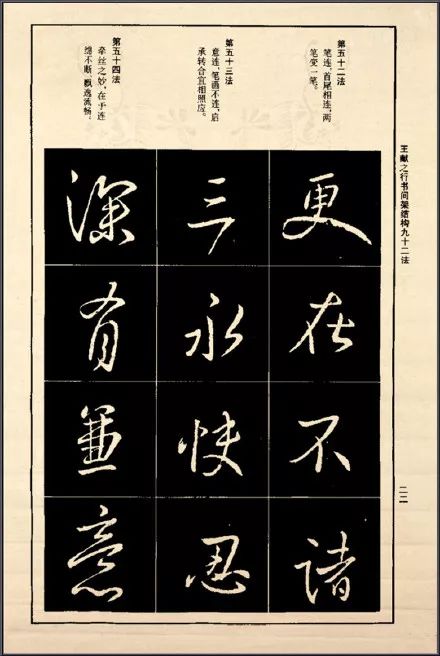 王献之行书间架结构九十二法
二二
第五十二法
笔连、首尾相连，两
笔变一笔。
更
在
不
诸
第五十三法
意连、笔画不连，启
承转合宜相照应。
三
永
快
忍
第五十四法
牵丝之妙，在于连
绵不断，飘逸流畅。
深
有
兼
意